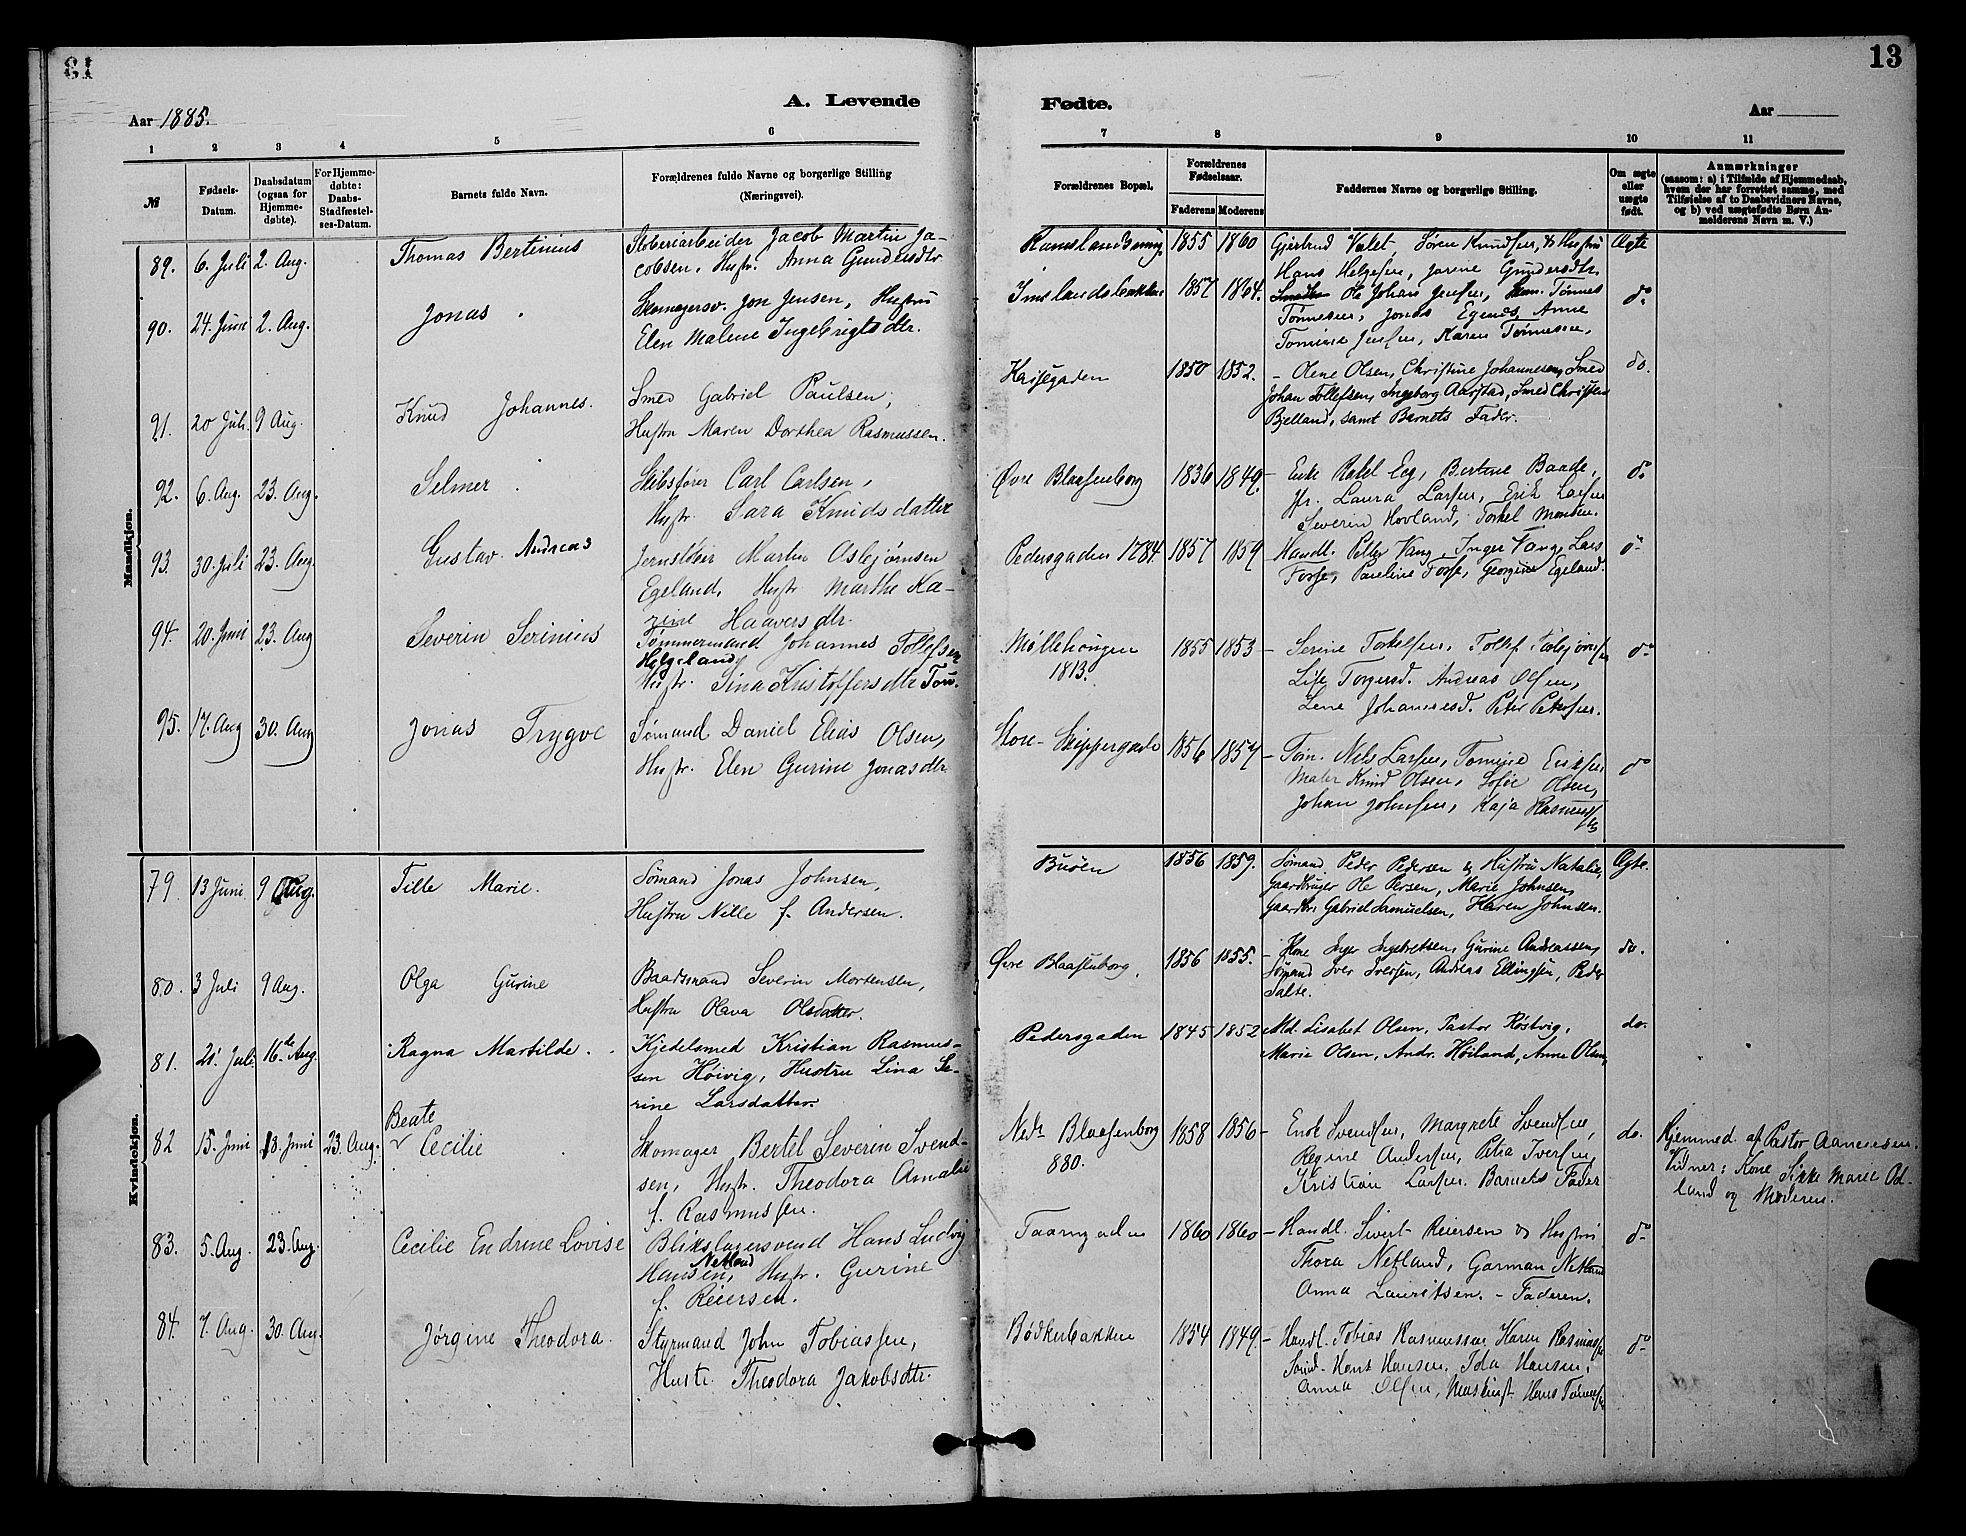 13
13
A. Levende
Fødte.
Aar 1885.
Aar
1 2 3 4 5 6 7 8 9 10 11
№
Fødsels-
Datum.
Daabsdatum
(ogsaa for
Hjemme-
døbte).
For Hjemme-
døbte:
Daabs-
Stadfæstel-
ses-Datum.
Barnets fulde Navn.
Forældrenes fulde Navne og borgerlige Stilling
(Næringsvei).
Forældrenes Bopæl.
Forældrenes
Fødselsaar.
Faderens Moderens
Faddernes Navne og borgerlige Stilling.
Om ægte
eller
uægte
født.
Anmærkninger
(saasom: a) i Tilfælde af Hjemmedaab,
hvem der har forrettet samme, med
Tilføielse af to Daabsvidners Navne,
og b) ved uægtefødte Børn An-
melderens Navn m. V.)
Mandkjøn.
89. 6. Juli 2. Aug. Thomas Bertinius
Støberiarbeider Jacob Martin Ja-
cobsen, Hustr. Anna Gundersdtr
1855 1860
Gjertrud Valet, Søren Knudsen, & Hustru
Hans Helgesen, Jorine Gundersdtr.
Ægte
90. 24. Juni 2. Aug. Jonas
Skomagersv. Jon Jensen, Hustru
Elen Malene Ingebrigtsdtr.
Imslandsbakken 1857 1864.
Ole Johan Jensen, Tønnes
Tønnesen, Jonas Egenes, Anne
Tomine Jensen, Karen Tønnesen.
do
91. 20 Juli 9 Aug. Knud Johannes.
Smed Gabriel Paulsen,
Hustru Maren Dorthea Rasmussen.
1850 1852.
- Olene Olsen, Christine Johannesen, Smed
Johan Tollefsen, Ingeborg Aarstad, Smed Christen
Bjelland, samt Barnets Fader.
do.
92. 6. Aug. 23. Aug. Selmer
Skibsfører Carl Carlsen,
Hustr. Sara Knudsdatter
Øvre Blaasenborg 1836 1849.
- Enke Rakel Eeg, Bertine Baade,
Jfr. Laura Larsen, Erik Larsen
Severin Hovland, Torkel Monsen.
do
93. 30. Juli 23. Aug. Gustav Andreas
Jernstøber Martin Osbjørnsen
Egeland, Hustr Marthe Ka-
rine Haaversdtr.
Pedersgaden 1784. 1857 1859
- Handl. Petter Vang, Inger Vang, Lars
Fosse, Pauline Fosse, Georgine Egeland.
do
94. 20. Juni 23. Aug Severin Serinius
Tømmermand Johannes Tollefsen
Helgeland
Hustr. Sina Kristoffersdtr
Møllehougen
1813.
1855 1853
- Serine Torkelsen, Tollef
Lise Torgersd. Andreas Olsen,
Lene Johannesd. Peter Petersen.
do
95. 17. Aug 30. Aug Jonas Trygve
Sømand Daniel Elias Olsen,
Hustr. Elen Gurine Jonasdtr
Store Skippergade 1856 1857
- Tøm. Nels Larsen, Tomine Eriksen
Maler Knud Olsen, Sofie Olsen,
Johan Johnsen, Kaja Rasmussen
do
Kvindekjøn.
79. 13 Juni 9 Aug. Tille Marie.
Sømand Jonas Johnsen,
Hustru Nille f. Andersen.
Buøen 1856 1859.
Sømand Peder Pedersen & Hustru Natalie,
Gaardbruger Ole Persen, Marie Johnsen,
Gaardbr. Gabriel Samuelsen, Karen Johnsen.
Ægte.
80. 3 Juli 9 Aug. Olga Gurine
Baadsmand Severin Mortensen,
Hustru Olava Olsdatter.
Øvre Blaasenborg. 1856 1855.
- Kone Inger Ingebretsen, Gurine Andreassen,
Sømand Iver Iversen, Andreas Ellingsen, Peder
Salte.
do.
81. 21 Juli 16de Aug. Ragna Martilde.
Kjedelsmed Kristian Rasmus-
sen Høivig, Hustru Lina Se-
rine Larsdatter.
Pedersgaden 1845 1852
- Md. Lisabet Olsen, Pastor Røstvig,
Marie Olsen, Andr. Høiland, Anne Olsen,
do.
82 15. Juni 18. Juni 23. Aug. Beate
Cecilie
Skomager Bertel Severin Svend-
sen, Hustr. Theodora Amalie
f. Rasmussen.
Nedr Blaasenborg
880.
1858 1856
- Enok Svendsen, Margrete Svendsen,
Regine Andersen, Petra Iversen,
Kristian Larsen. Barnets Fader
do.
Hjemmed. af Pastor Aanensen.
Vidner: Kone Sikke Marie Od-
land og Moderen.
83. 5. Aug. 23. Aug. Cecilie Endrine Lovise
Blikslagersvend Hans Ludvig
Netland
Hansen, Hustr. Gurine
f. Reiersen.
Taarngaden 1860 1860
- Handl. Sivert Reiersen & Hustru
Thora Netland, Garman Netland
Anna Lauritsen. - Faderen.
do
84. 7. Aug. 30. Aug. Jørgine Theodora.
Styrmand John Tobiassen,
Hustr. Theodora Jakobsdtr.
Bødkerbakken 1854 1849.
- Handl. Tobias Rasmussen, Karen Rasmussen
Sømd. Hans Hansen, Ida Hansen,
Anna Olsen, Maskinst. Hans Tønnesen
do